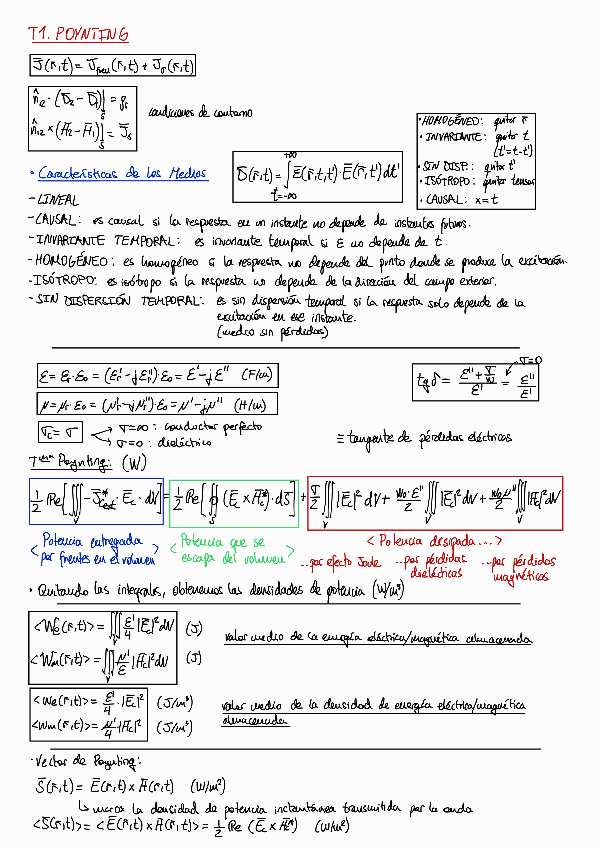 T1. POYNTING
J̄(r̄,t) = J̄fren(r̄,t) + J̄σ(r̄,t)
n̂12 · (D̄2 − D̄1)|s = ρs
n̂12 × (H̄2 − H̄1)|s = J̄s
condiciones de contorno
· HOMOGÉNEO: quitar r̄
· INVARIANTE: quitar t
(t'=t-t')
· SIN DISP.: quitar t'
· ISÓTROPO: quitar tensor
· CAUSAL: x=t
· Características de los Medios
D̄(r̄,t) = ∫ E̿(r̄,t,t')·Ē(r̄,t')dt'
+∞
t=-∞
- LINEAL
- CAUSAL: es causal si la respuesta en un instante no depende de instantes futuros.
- INVARIANTE TEMPORAL: es invariante temporal si ε no depende de t.
- HOMOGÉNEO: es homogéneo si la respuesta no depende del punto donde se produce la excitación.
- ISÓTROPO: es isótropo si la respuesta no depende de la dirección del campo exterior.
- SIN DISPERSIÓN TEMPORAL: es sin dispersión temporal si la respuesta solo depende de la
excitación en ese instante.
(medio sin pérdidas)
ε = εr·ε0 = (εr' - jεr'')·ε0 = ε' - jε'' (F/m)
μ = μr·μ0 = (μr' - jμr'')·μ0 = μ' - jμ'' (H/m)
σc = σ
σ=∞: conductor perfecto
σ=0: dieléctrico
tgδ = (ε'' + σ/ω)/ε' = ε''/ε'
σ=0
≡ tangente de pérdidas eléctricas
Tma Poynting: (W)
1/2 Re[∭v −J̄*ext · Ēc · dV] = 1/2 Re[∯s (Ēc × H̄c*)·ds̄] + σ/2 ∭v |Ēc|² dV + ω0·ε''/2 ∭v |Ēc|² dV + ω0μ''/2 ∭v |H̄c|² dV
< Potencia entregada por fuentes en el volumen >
< Potencia que se escapa del volumen >
< Potencia disipada...>
...por efecto Joule ...por pérdidas dieléctricas ...por pérdidas magnéticas
· Quitando las integrales, obtenemos las densidades de potencia (W/m³)
<We(r̄,t)> = ∭v ε'/4 |Ēc|² dV (J)
<Wm(r̄,t)> = ∭v μ'/4 |H̄c|² dV (J)
valor medio de la energía eléctrica/magnética almacenada
<we(r̄,t)> = ε'/4 · |Ēc|² (J/m³)
<wm(r̄,t)> = μ'/4 · |H̄c|² (J/m³)
valor medio de la densidad de energía eléctrica/magnética
almacenada
· Vector de Poynting:
S̄(r̄,t) = Ē(r̄,t) × H̄(r̄,t) (W/m²)
↳ marca la densidad de potencia instantánea transmitida por la onda
<S̄(r̄,t)> = <Ē(r̄,t) × H̄(r̄,t)> = 1/2 Re (Ēc × H̄c*) (W/m²)